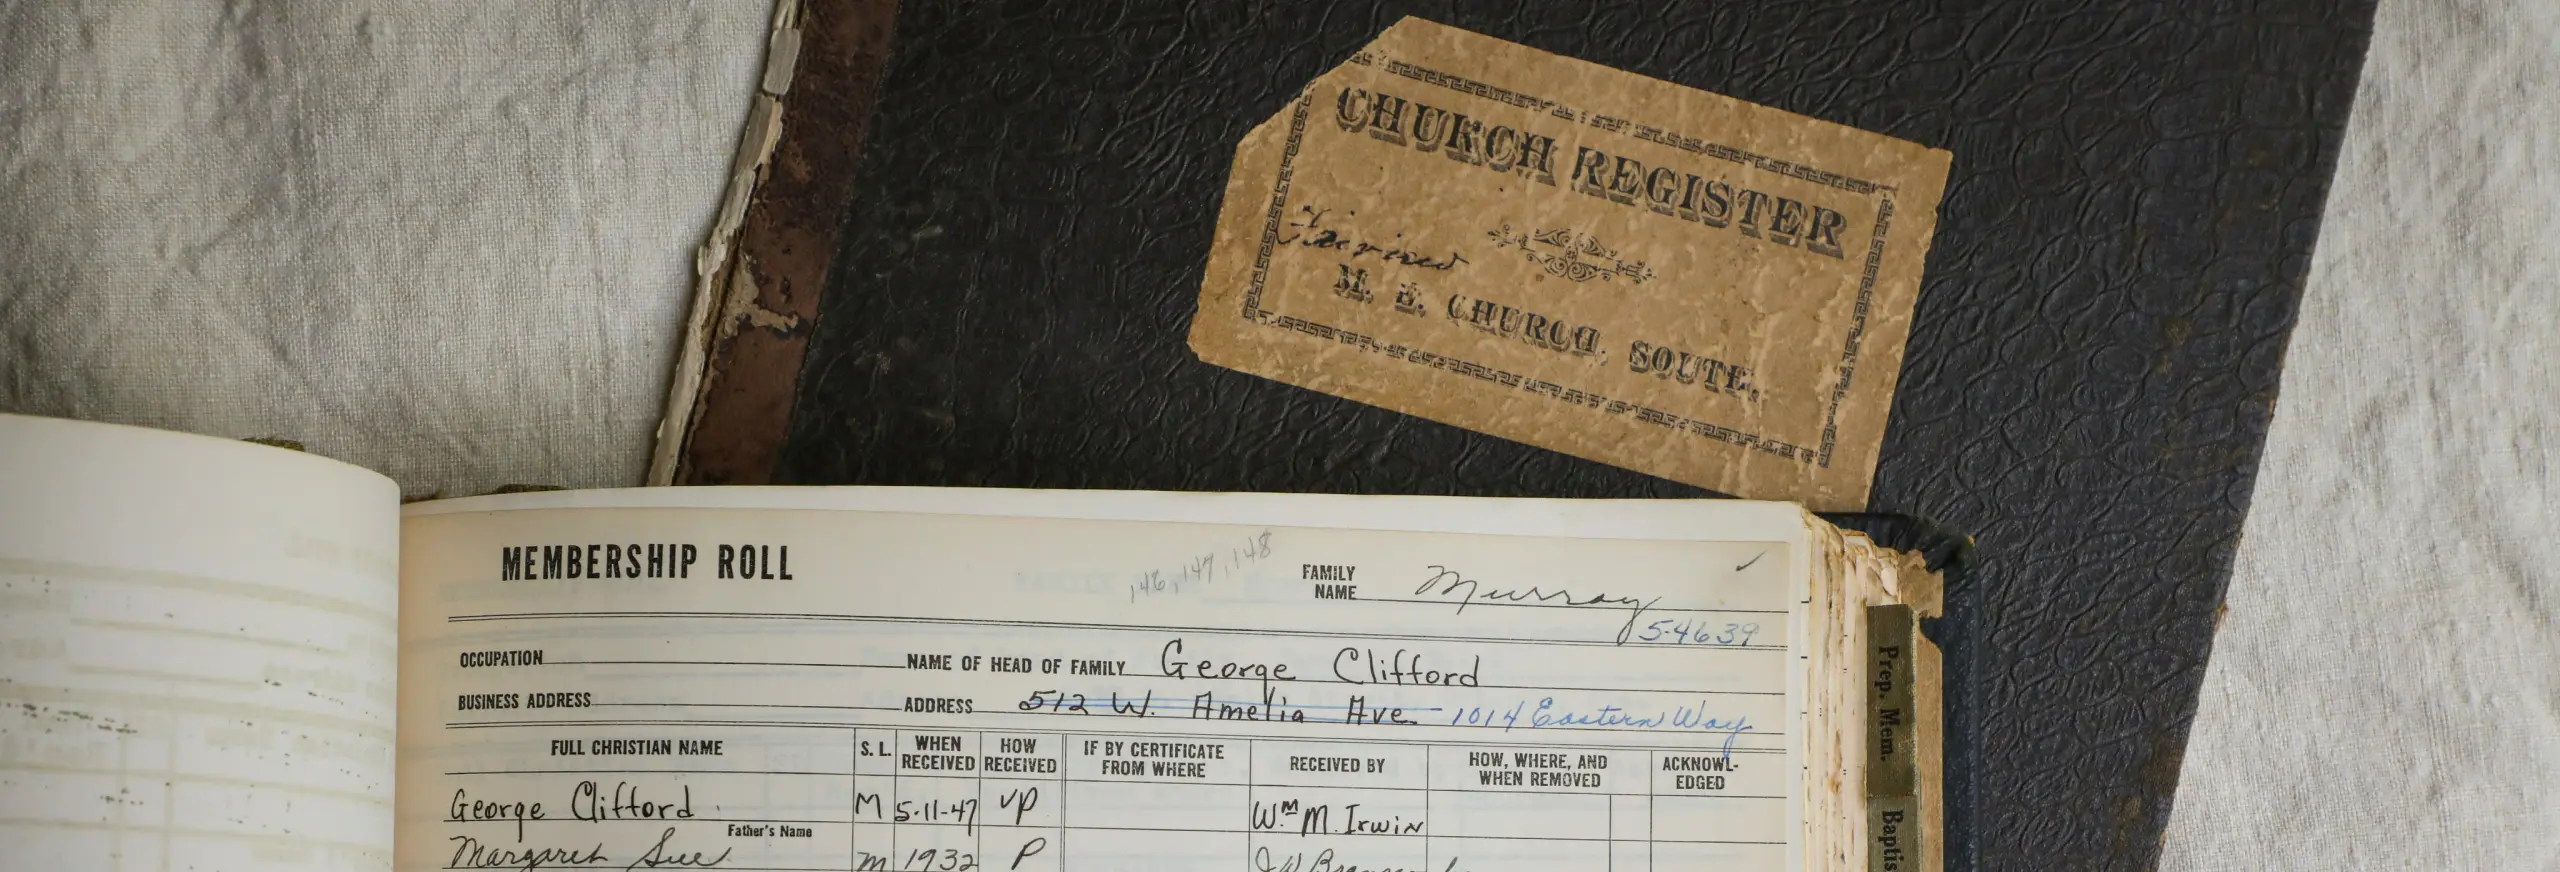 CHURCH REGISTER
M. E. CHURCH, SOUTH.
MEMBERSHIP ROLL
146, 147, 148
FAMILY NAME Murray
5-4639
OCCUPATION NAME OF HEAD OF FAMILY George Clifford
BUSINESS ADDRESS ADDRESS 512 W. Amelia Ave. 1014 Eastern Way
FULL CHRISTIAN NAME S. L. WHEN RECEIVED HOW RECEIVED IF BY CERTIFICATE FROM WHERE RECEIVED BY HOW, WHERE, AND WHEN REMOVED ACKNOWL-EDGED
George Clifford M 5-11-47 VP Wm M. Irwin
Father's Name
Margaret Sue M 1932 P J W
Prep. Mem.
Baptis